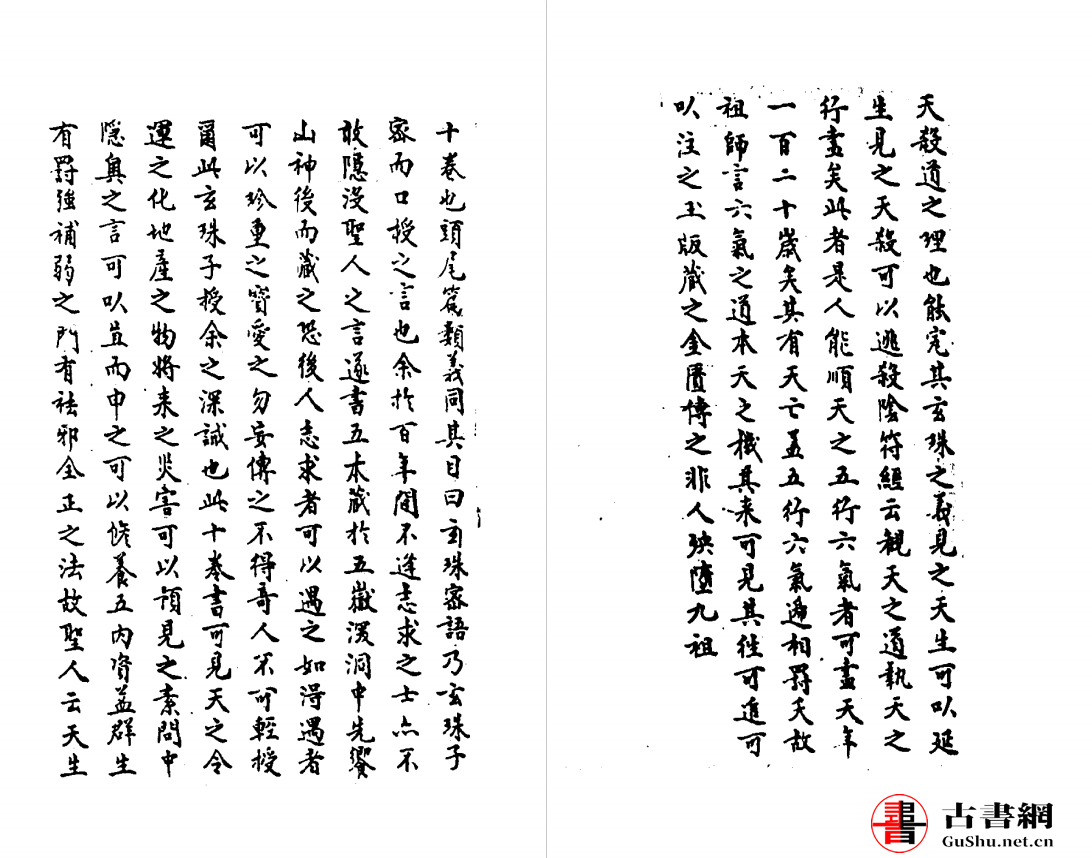 十卷也頭尾篇類義同其目曰玄珠密語乃玄珠子
密而口授之言也余於百年間不逢志求之士亦不
敢隱沒聖人之言遂書五本藏於五嶽深洞中先饗
山神後而藏之恐後人志求者可以遇之如得遇者
可以珍重之寶愛之勿妄傳之不得奇人不可輕授
爾此玄珠子授余之深誡也此十卷書可見天之令
運之化地產之物將來之災害可以預見之素問中
隱奧之言可以直而申之可以修養五內資益群生
有罰強補弱之門有祛邪全正之法故聖人云天生
天殺道之理也能究其玄珠之義見之天生可以延
生見之天殺可以逃殺陰符經云觀天之道執天之
行盡矣此者是人能順天之五行六氣者可盡天年
一百二十歲矣其有夭亡蓋五行六氣遞相罰天故
祖師言六氣之道本天之機其來可見其往可追可
以注之玉版藏之金匱傳之非人殃墮九祖
書 古書網
GuShu.net.cn